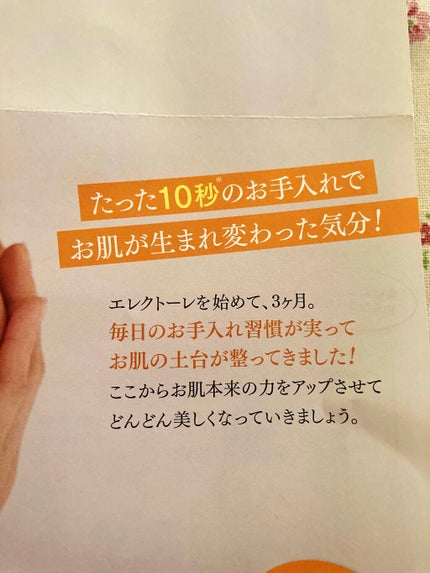 たった10秒※のお手入れで
お肌が生まれ変わった気分!
エレクトーレを始めて、3ヶ月。
毎日のお手入れ習慣が実って
お肌の土台が整ってきました!
ここからお肌本来の力をアップさせて
どんどん美しくなっていきましょう。